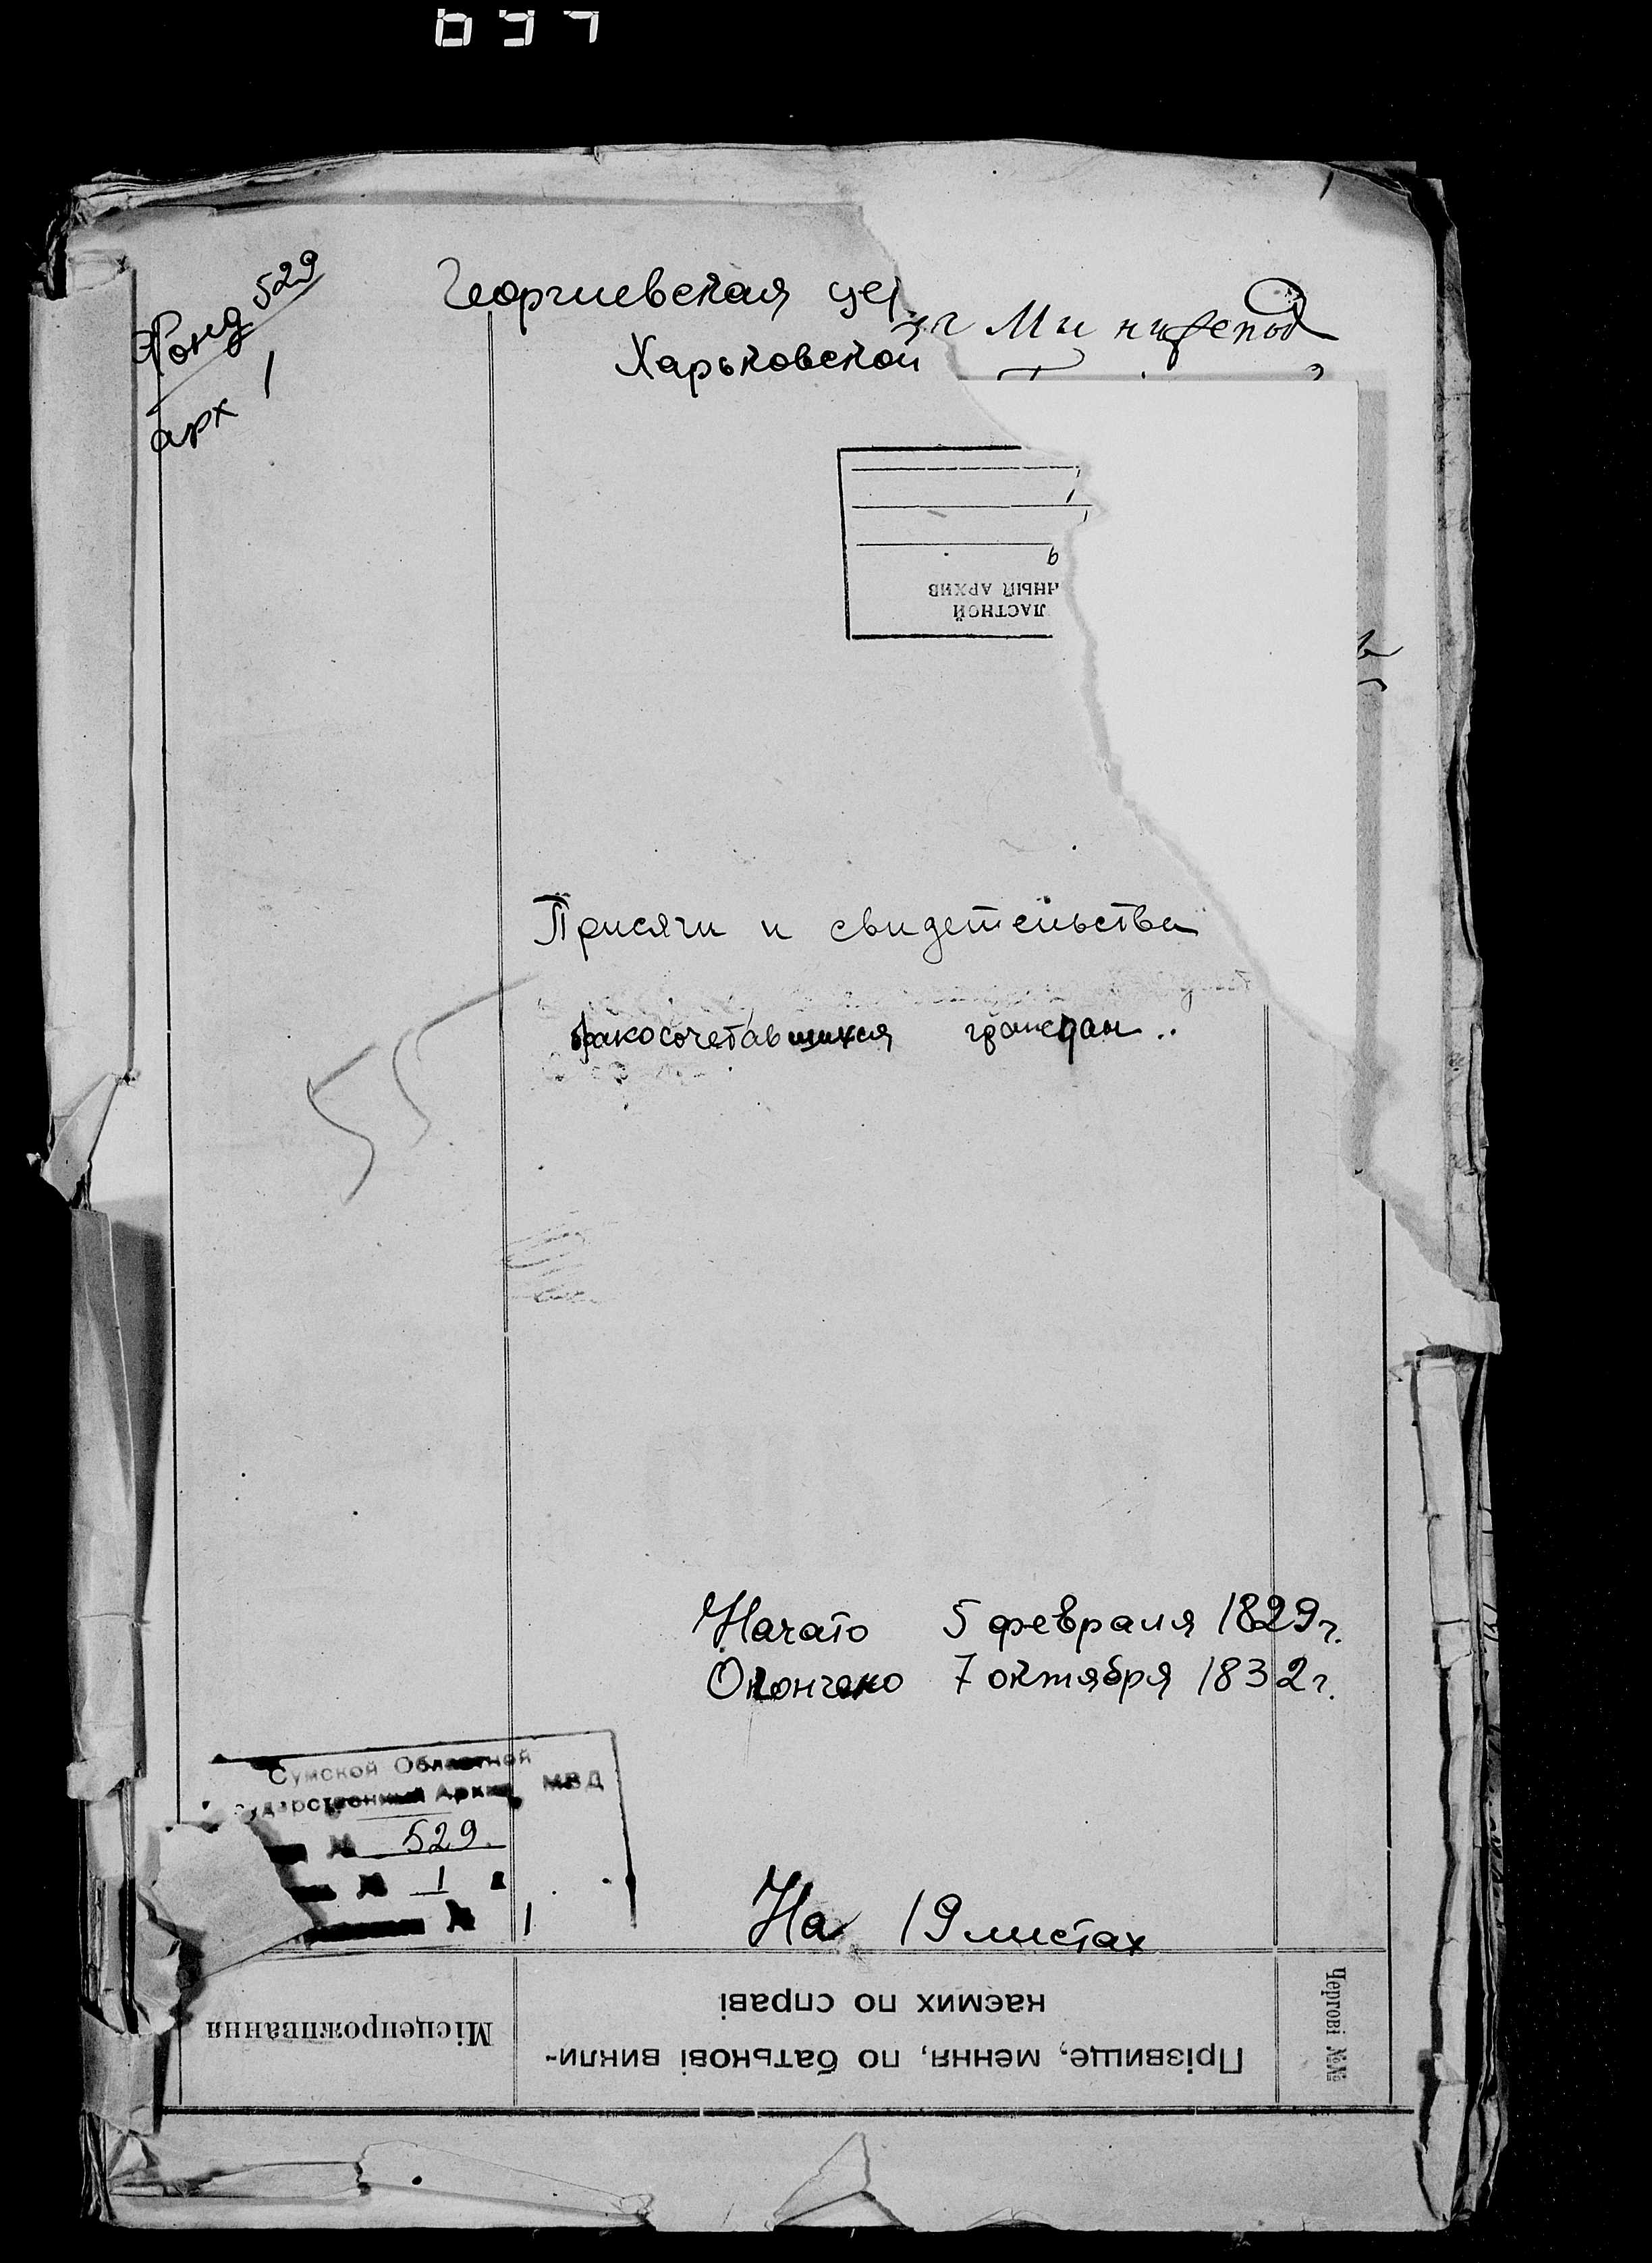 Фонд 529
арх 1
Георгиевская цер
Харьковской
ЛАСТНОЙ
ННЫЙ АРХИВ
Присяги и свидетельства
бракосочетавшихся граждан..
55
Начато 5 февраля 1829 г.
Окончено 7 октября 1832 г.
Сумской Областной
сударственный Архив МВД
№ 529.
№ 1
№ 1
На 19 листах
Чергові №№
Прізвище, мення, по батькові викли-
каємих по справі
Місцепроживання